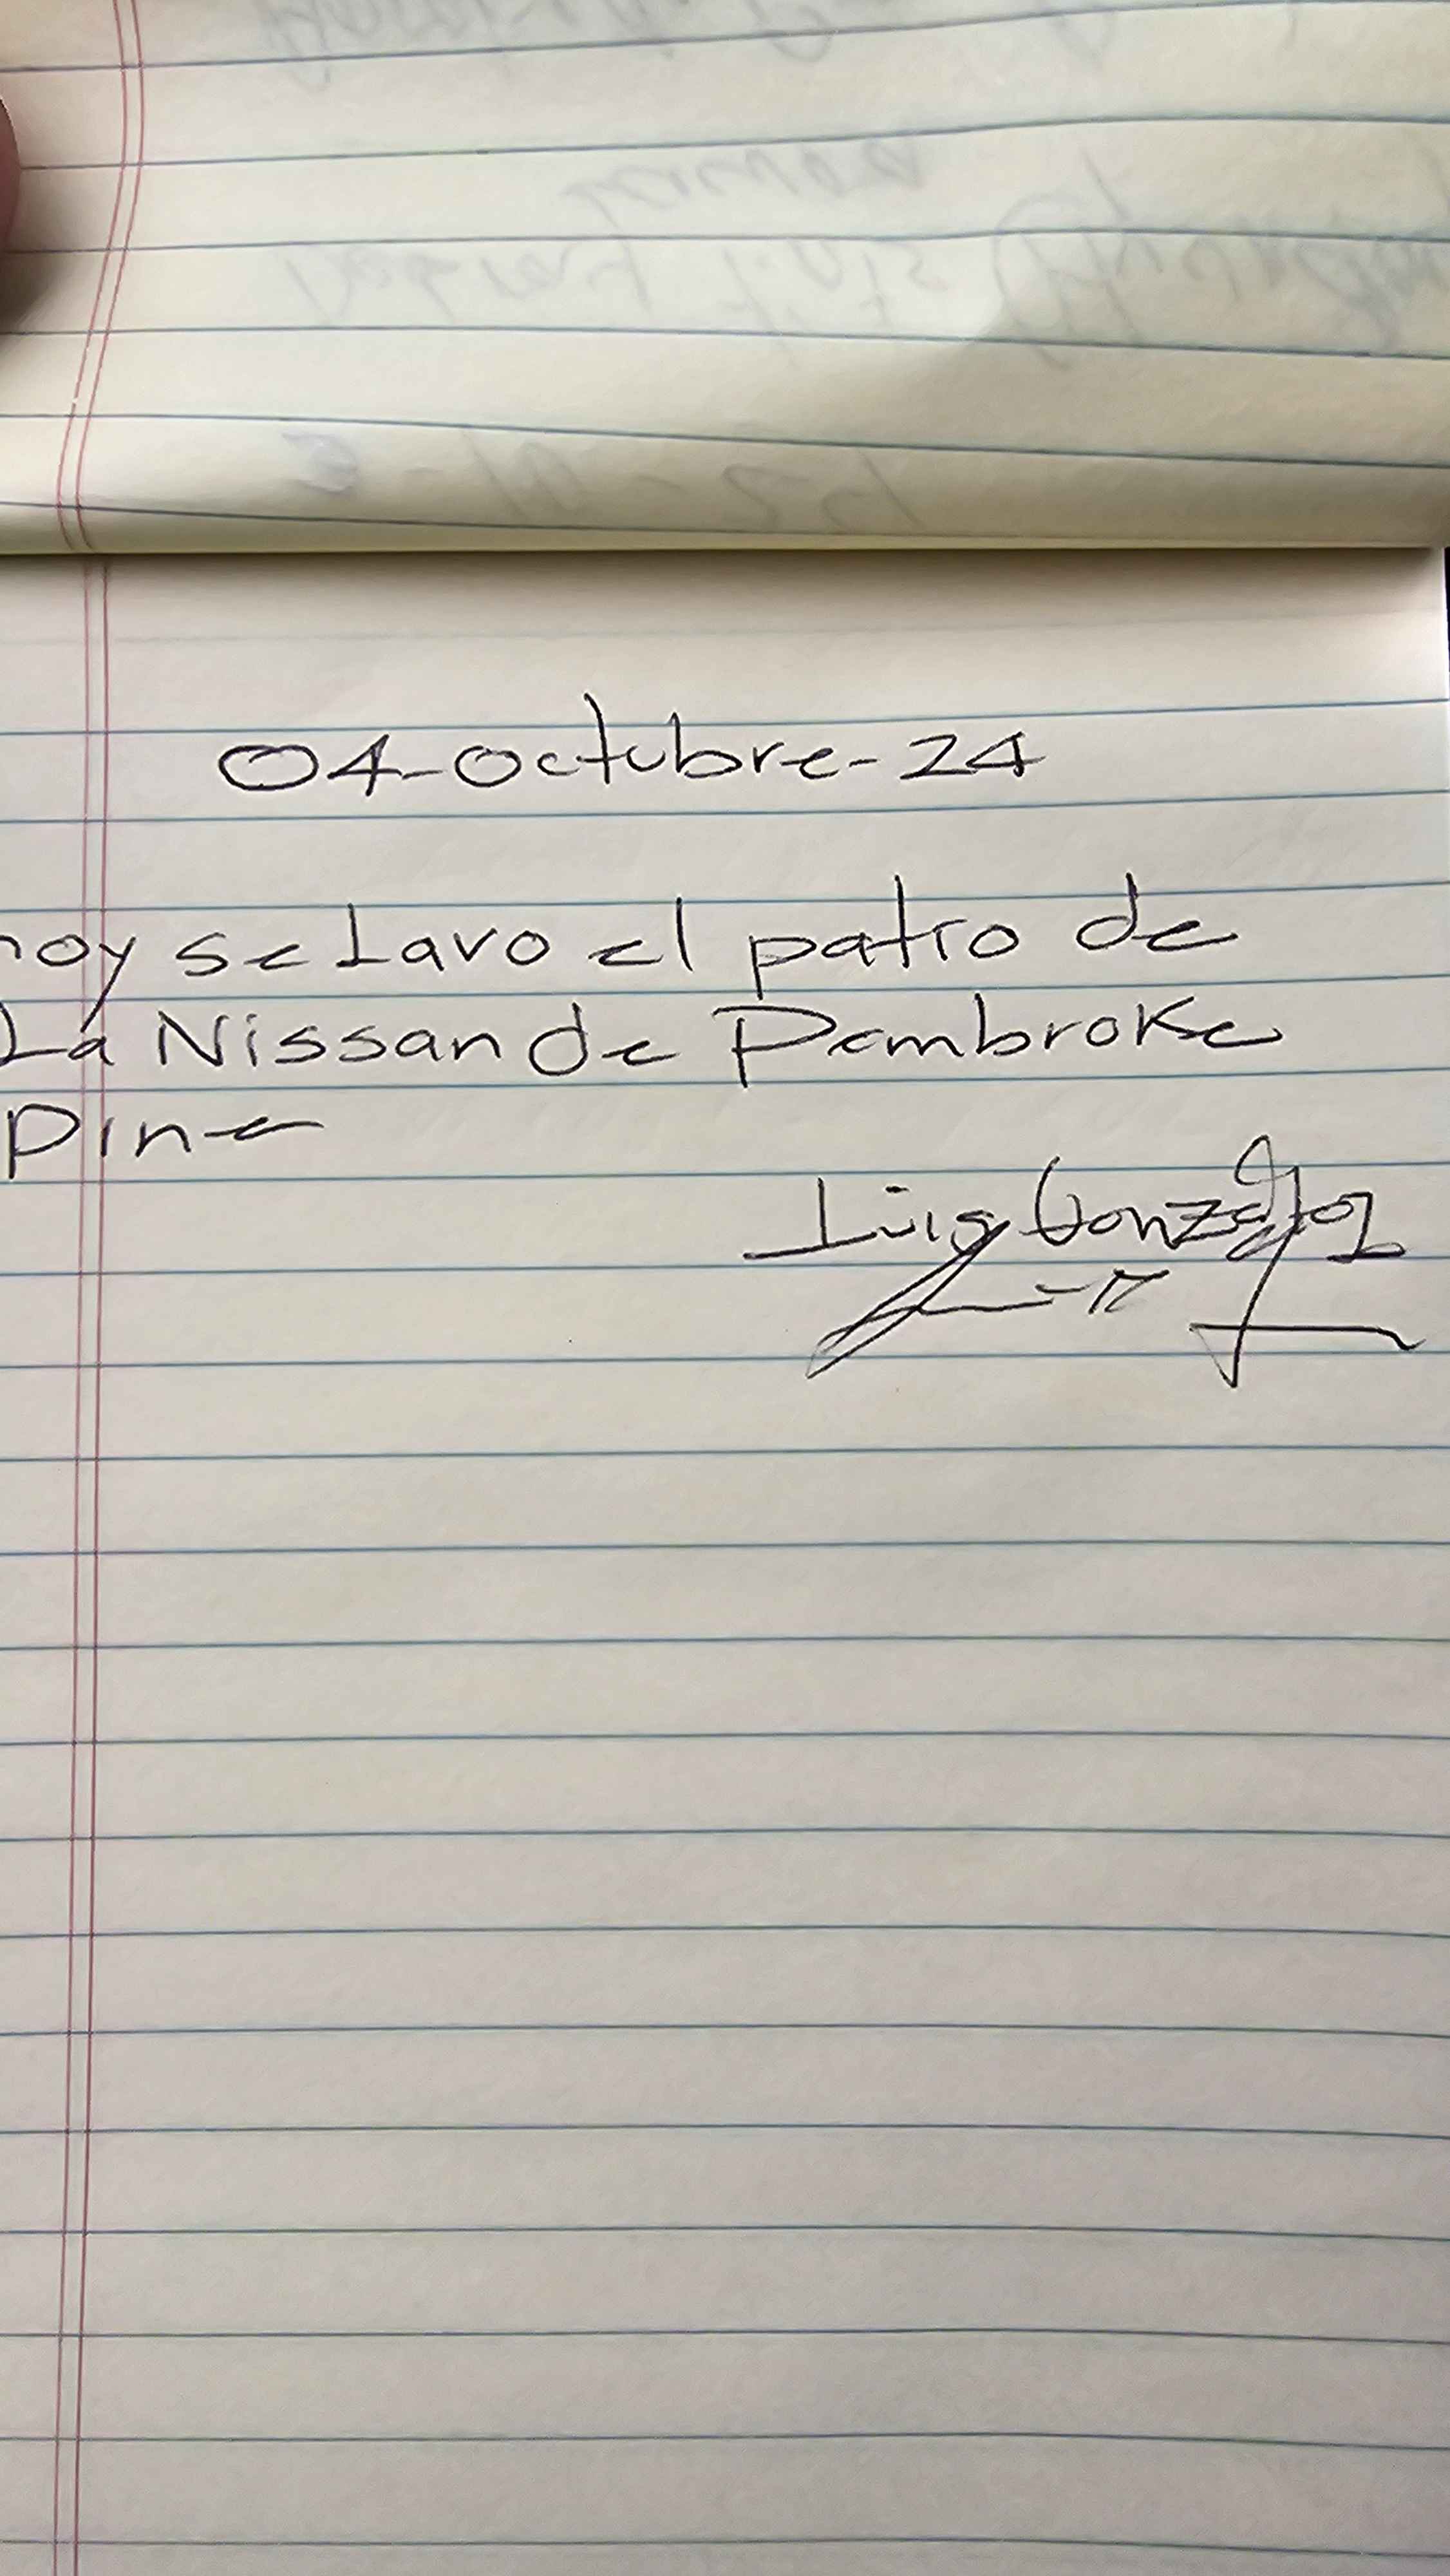 04-Octubre-24
hoy se Lavo el patio de
La Nissan de Pembroke
Pine
Luis Gonzalez